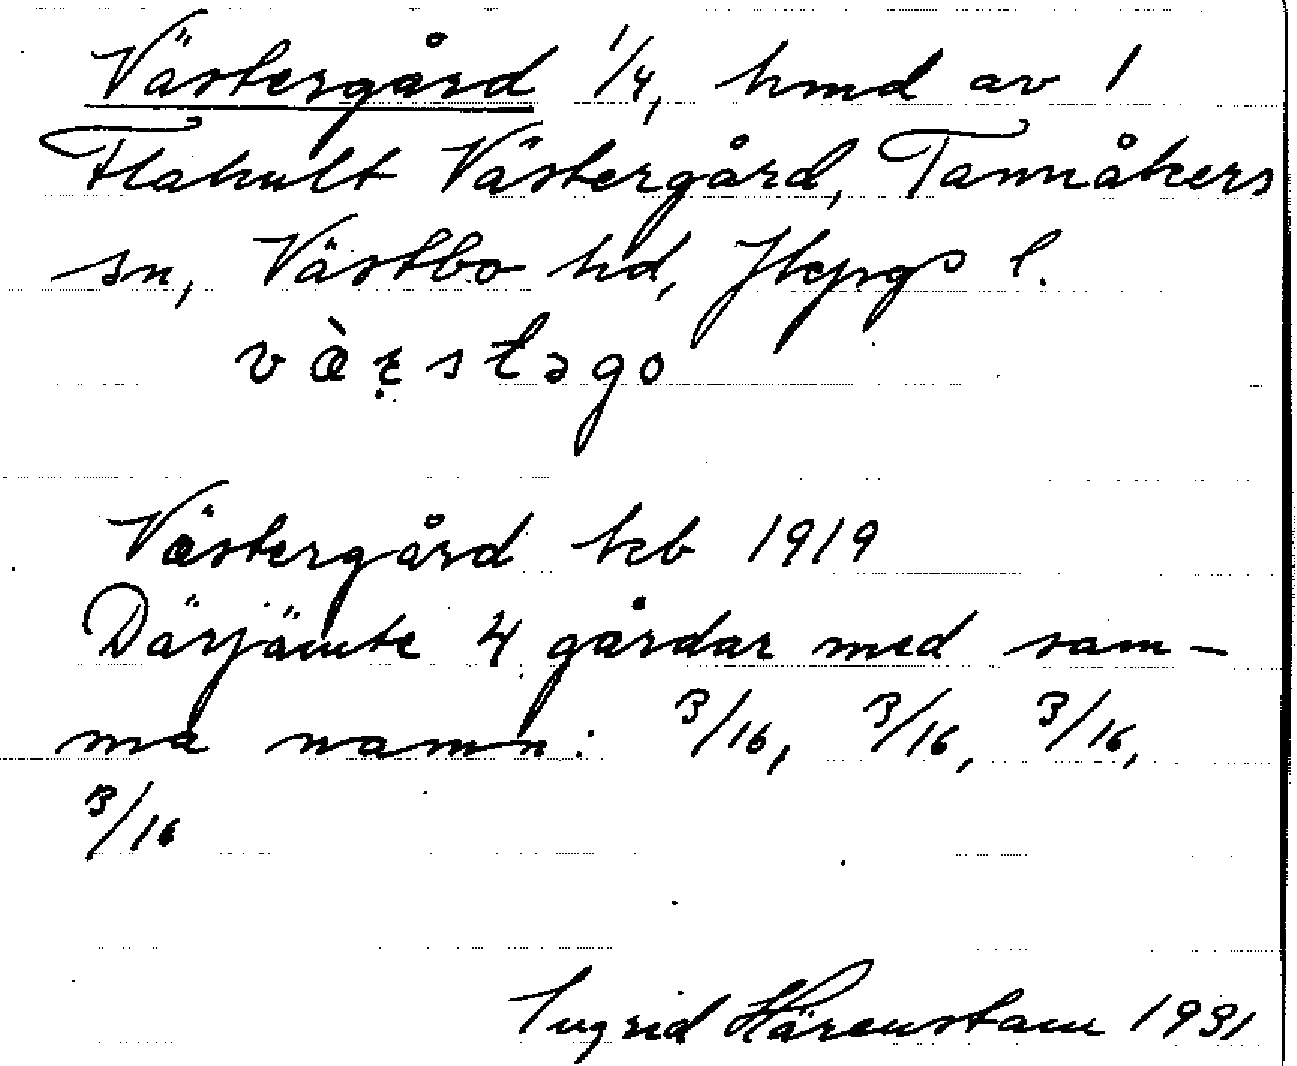 Västergård 1/4, hmd av 1
Flahult Västergård, Tannåkers
sn, Västbo hd, Jkpgs l.
Västergård kb 1919
Därjämte 4 gårdar med sam-
ma namn: 3/16, 3/16, 3/16,
3/16
Ingrid Härenstam 1931